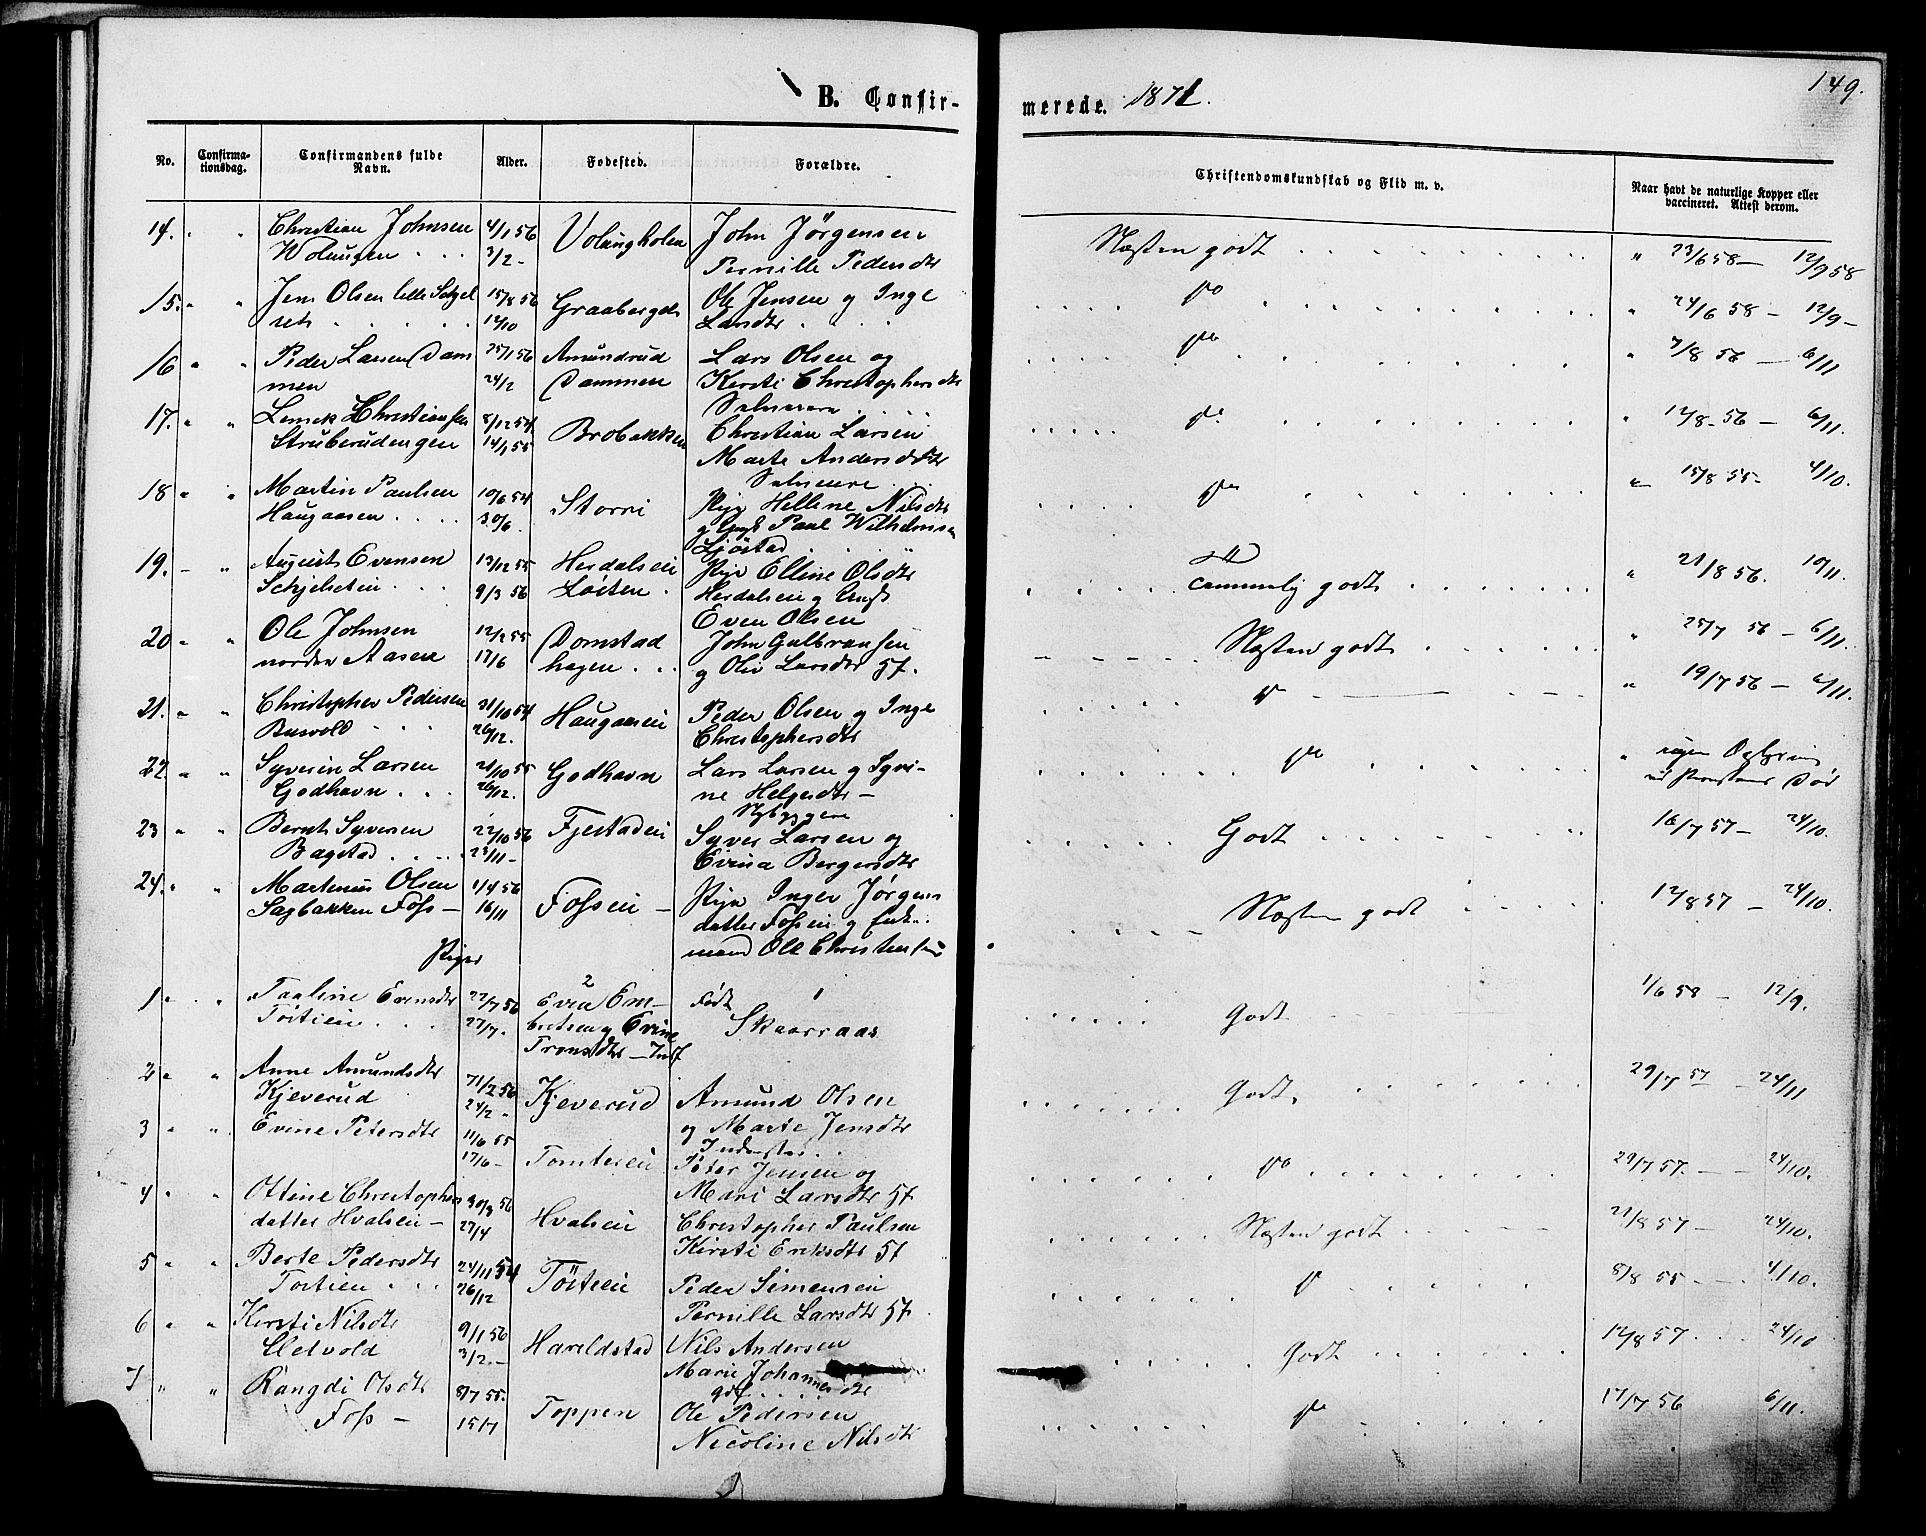 149.
B. Confirmerede. 1871.
No. Confirmationsdag. Confirmandens fulde Navn. Alder. Fødested. Forældre. Christendomskundskab og Flid m. v. Naar havt de naturlige Kopper eller vaccineret. Attest derom.
14. " " Christian Johnsen 4/1 56 Volungholen John Jörgensen Næsten godt " 23/6 58 — 12/9 58
Wolungen 3/2 - Pernille Pedersdtr
15. " " Jens Olsen lille 15/8 56 Ole Jensen og Inge do " 24/6 58 - 12/9 -
12/10 Larsdtr
16 " " Peder Larsen Dam 25/1 56 Amundrud Lars Olsen og do " 7/8 56 — 6/11
men 24/2 Dammen Kersti Christophersdtr
17. " " Christiansen 8/12 54 Brobakken Christian Larsen do " 12/8 - 56 — 6/11.
Struberudengen 14/1 55 Marte Andersdtr
18 " " Martin Paulsen 10/6 54 Storri Pige Helline Nilsdtr do 15/8 55 - 4/10.
Haugaasen 30/6. og Ungk Paul Wilhelmsen
Ljöstad
19. - " August Evensen 13/12 55 Herdalseie Pige Elline Olsdtr " 21/8 56. 10/11.
9/3 56 Löiten Herdalseie og Ungk temmelig godt
Even Olsen
20 " " Ole Johnsen 12/2 55 Domstad John Gulbransen Næsten godt " 25/7 56 - 6/11.
nordre Aasen 17/6 hagen og Oliv Larsdtr Hf.
21. " " Christopher Pedersen 21/10 54 Haugaaseie Peder Olsen og Inge do " 19/7 56 — 6/11.
Busvold 26/12. Christophersdtr
22 " " Syverin Larsen 21/10 55 Godhavn Lars Larsen og Syvi- do "
Godhavn 26/12. ne Helgesdtr —
Nybyggere
23 " " Bernt Syversen 22/10 56 Fjestadeie Syver Larsen og Godt 16/7 57 — 24/10.
Bagstad 23/11 - Evina Bergersdtr
24. " " Martinus Olsen 1/4 56 Fosseie — Pige Inger Jörgens Næsten godt 12/8 57 — 24/10.
Sagbakken Foss — 16/11 datter Fosseie og Enke-
mand Ole Christensen
Piger
1 " " Pauline Evensdtr 22/7 56 Even Em- Født Godt 1/6 58 — 12/9.
Töiteie 27/7. bretsen og Evine Skaaraas
Tronsdtr — Indf
2 " " Anne Amundsdtr 21/2 56 Kjeverud Amund Olsen Godt 29/7 57 — 24/11
Kjeverud 24/2 og Marte Jensdtr
3 " " Evine Petersdtr 11/6 55 Tomteeie Peter Jensen og do 29/7 57. — 24/10.
17/6 - Mari Larsdtr Hf
4 " " Ottine Christophers 30/3 56 Hvalseie Christopher Paulsen Næsten godt 21/8 57 — 24/10.
datter Hvalseie — 27/4 Kirsti Eriksdtr Hf
5 " " Berte Pedersdtr 24/11 54 Töiteeie Peder Simensen do 8/8 55 — 4/10.
Töiteie 26/12 Pernille Larsdtr Hf
6 " " Kirsti Nilsdtr 9/1 56 Haraldstad Nils Andersen Godt 12/8 57 24/10
Sletvold 3/2. - Marie Johannesdtr
7 " " Rangdi Olsdtr 8/7 55. Toppen Ole Pedersen do 17/7 56 6/11.
Foss — 15/7 Nicoline Nilsdtr